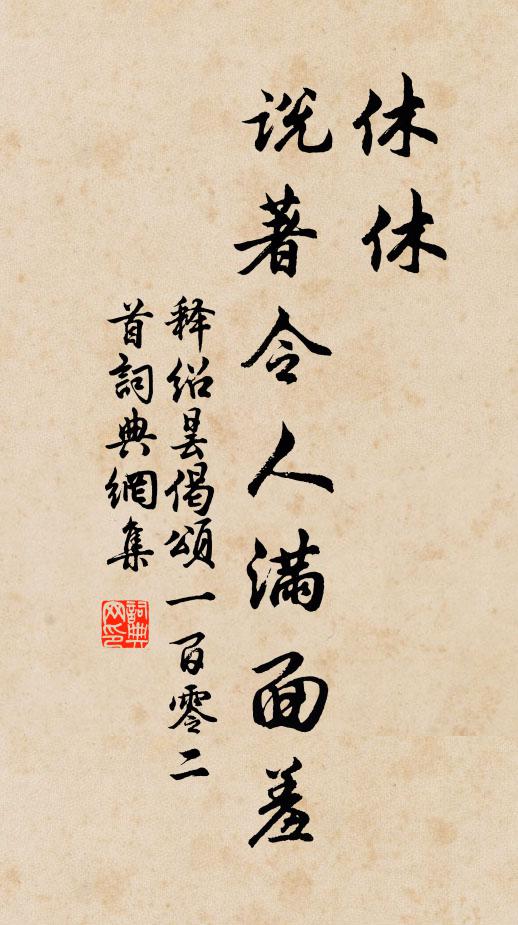 休休
说著令人满面羞
释绍昙偈颂一百零二
首詞典網集
詞典网印